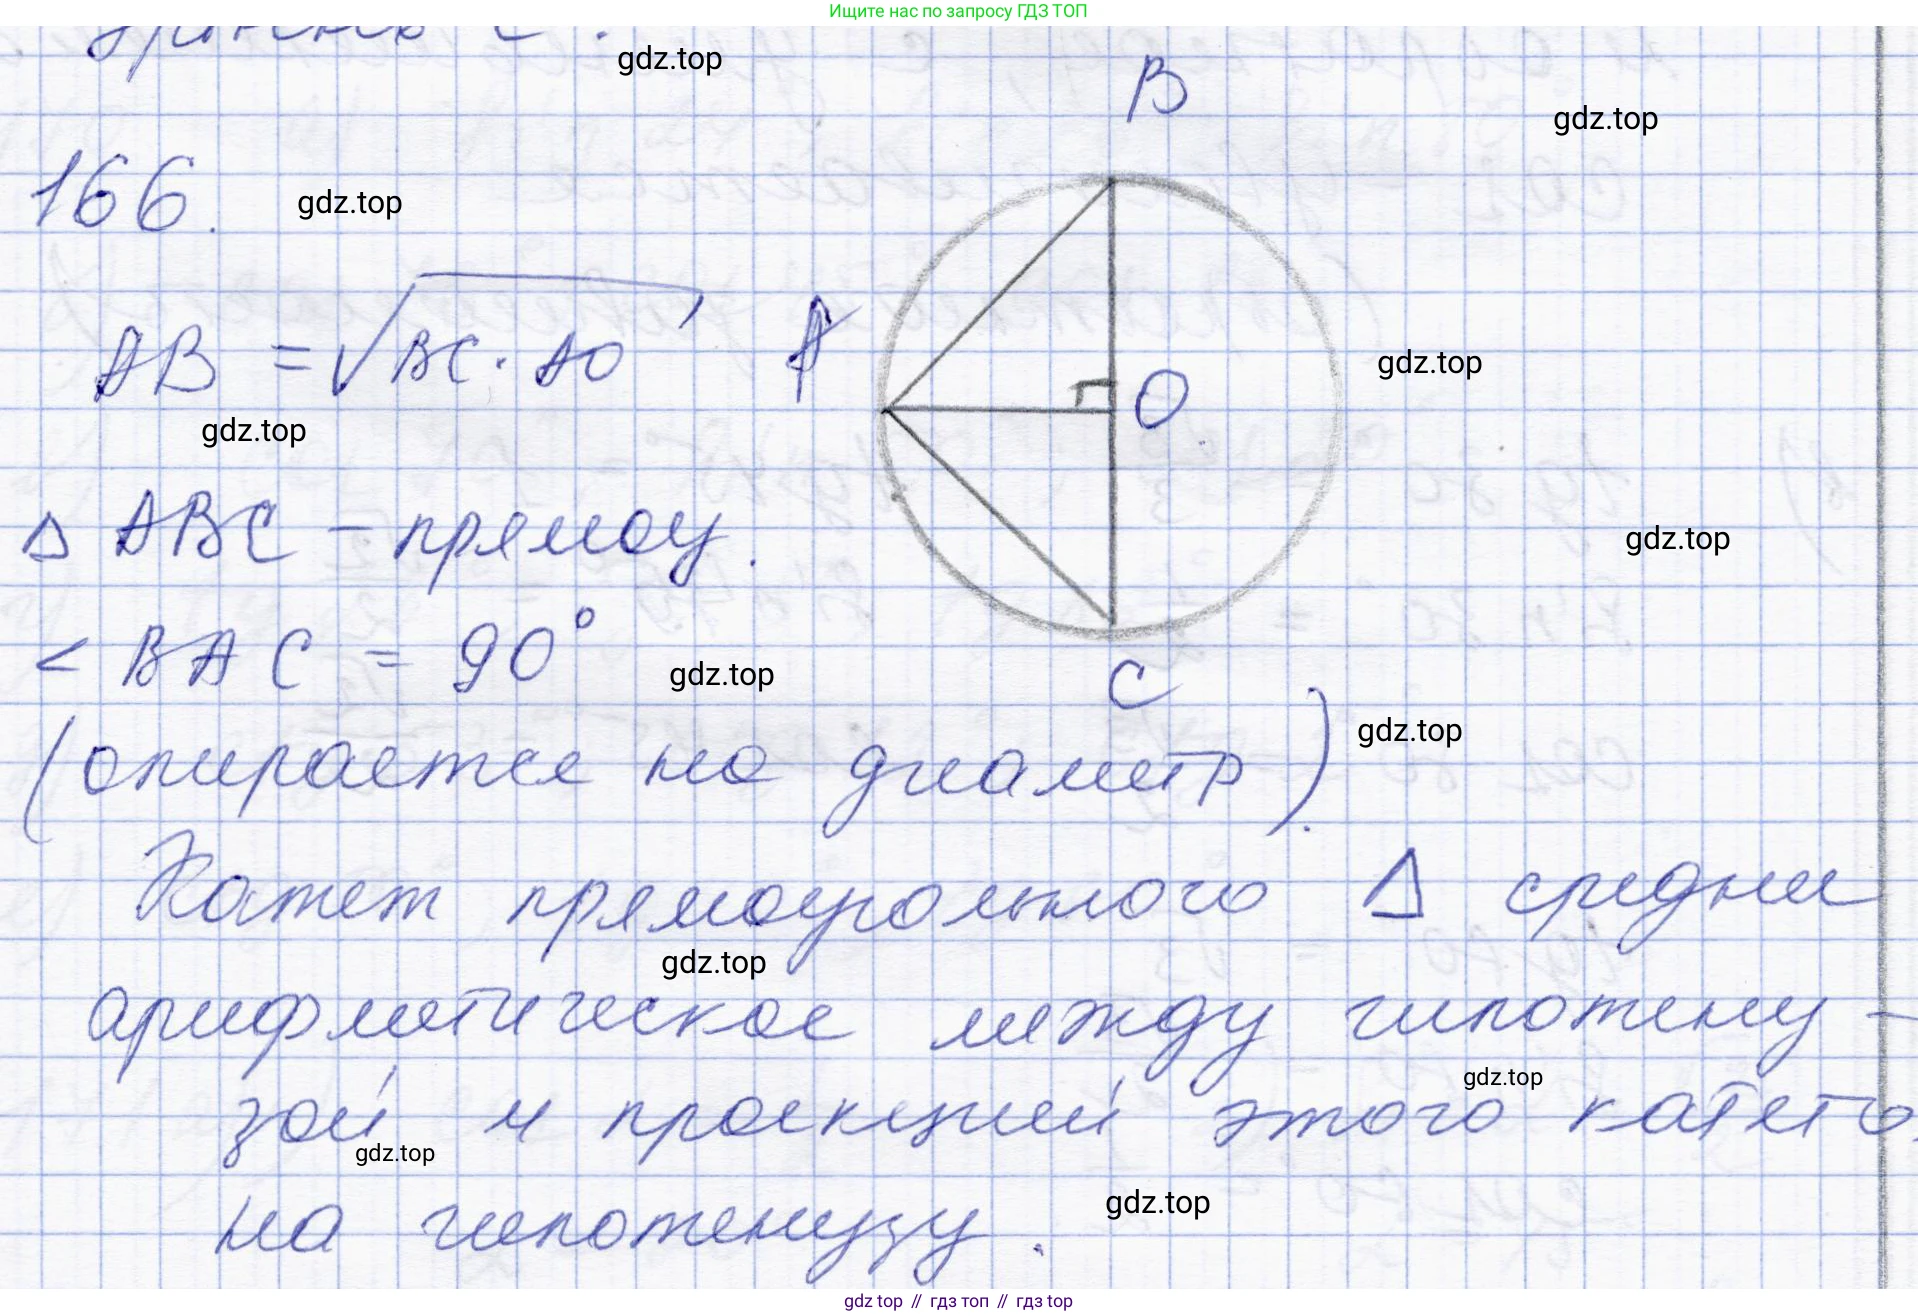 Ищите нас по запросу ГДЗ ТОП
gdz.top
B
gdz.top
166.
gdz.top
AB = √BC · AO
A
gdz.top
O
gdz.top
Δ ABC – прямоу.
gdz.top
< BAC = 90°
gdz.top
C
(опирается на диаметр).
gdz.top
Катет прямоугольного Δ средни
gdz.top
арифметическое между гипотену-
gdz.top
зой и проекцией этого катета
gdz.top
на гипотенузу.
gdz.top
gdz top // гдз топ // гдз top